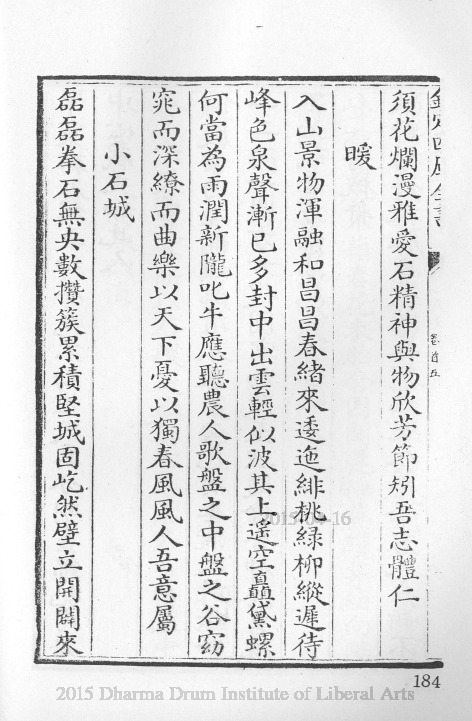 欽定四庫全書
卷首五
須花爛漫雅愛石精神與物欣芳節矧吾志體仁
暖
入山景物渾融和昌昌春緒來逶迤緋桃綠柳縱遲待
峰色泉聲漸已多封中出雲輕似波其上遙空矗黛螺
何當為雨潤新隴叱牛應聽農人歌盤之中盤之谷窈
窕而深繚而曲樂以天下憂以獨春風風人吾意屬
小石城
磊磊拳石無央數攢簇累積堅城固屹然壁立開闢來
184
2015-04-16
2015 Dharma Drum Institute of Liberal Arts